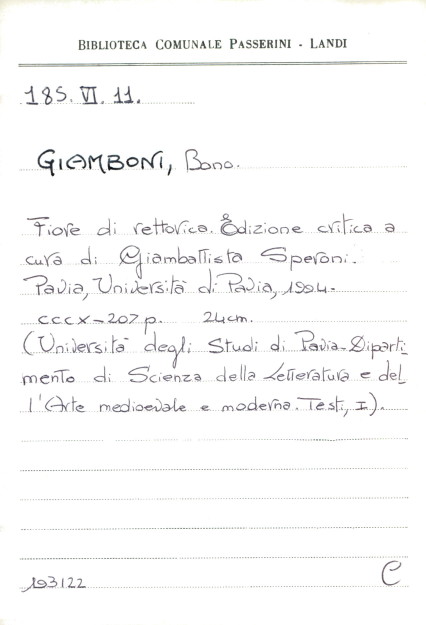 BIBLIOTECA COMUNALE PASSERINI - LANDI
185. VI. 11.
GIAMBONI, Bono.
Fiore di rettorica. Edizione critica a
cura di Giambattista Speroni.
Pavia, Università di Pavia, 1994.
CCCX-207 p. 24cm.
(Università degli Studi di Pavia-Diparti-
mento di Scienza della Letteratura e del
l'Arte medioevale e moderna. Testi, I).
193122 C